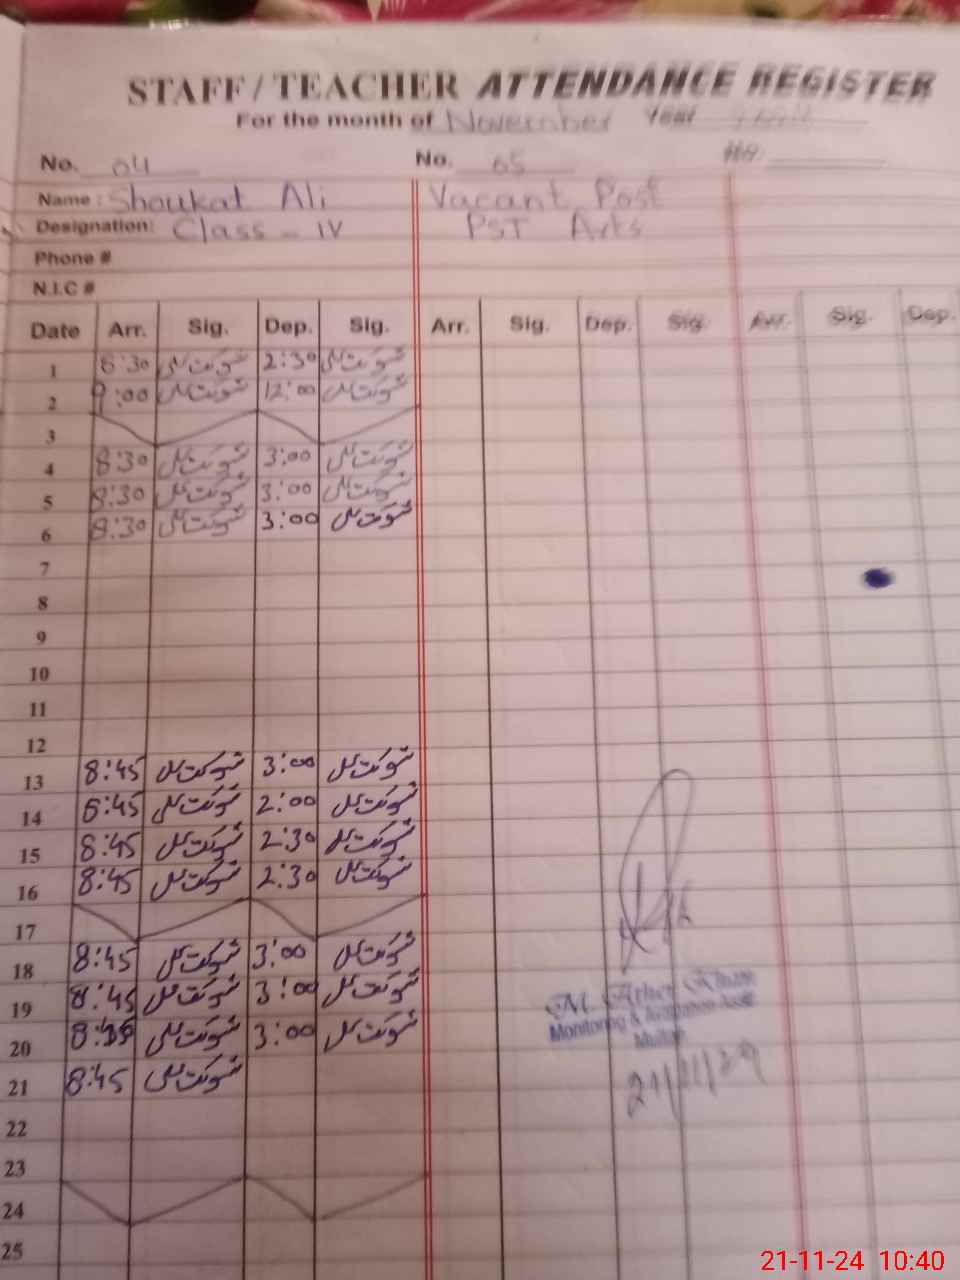 STAFF / TEACHER ATTENDANCE REGISTER
For the month of November Year
No. 04 No. 05 No.
Name : Shoukat Ali Vacant Post
Designation: Class - IV PST Arts
Phone #
N.I.C #
Date Arr. Sig. Dep. Sig. Arr. Sig. Dep. Sig. Arr. Sig. Dep.
1 8:30 شوکت علی 2:30 شوکت علی
2 9:00 شوکت علی 12:00 شوکت علی
3
4 8:30 شوکت علی 3:00 شوکت علی
5 8:30 شوکت علی 3:00 شوکت علی
6 8:30 شوکت علی 3:00 شوکت علی
7
8
9
10
11
12
13 8:45 شوکت علی 3:00 شوکت علی
14 8:45 شوکت علی 2:00 شوکت علی
15 8:45 شوکت علی 2:30 شوکت علی
16 8:45 شوکت علی 2:30 شوکت علی
17
18 8:45 شوکت علی 3:00 شوکت علی
19 8:45 شوکت علی 3:00 شوکت علی
20 شوکت علی 3:00 شوکت علی
Monitoring &
21 8:45 شوکت علی
21/11/24
22
23
24
25
21-11-24 10:40